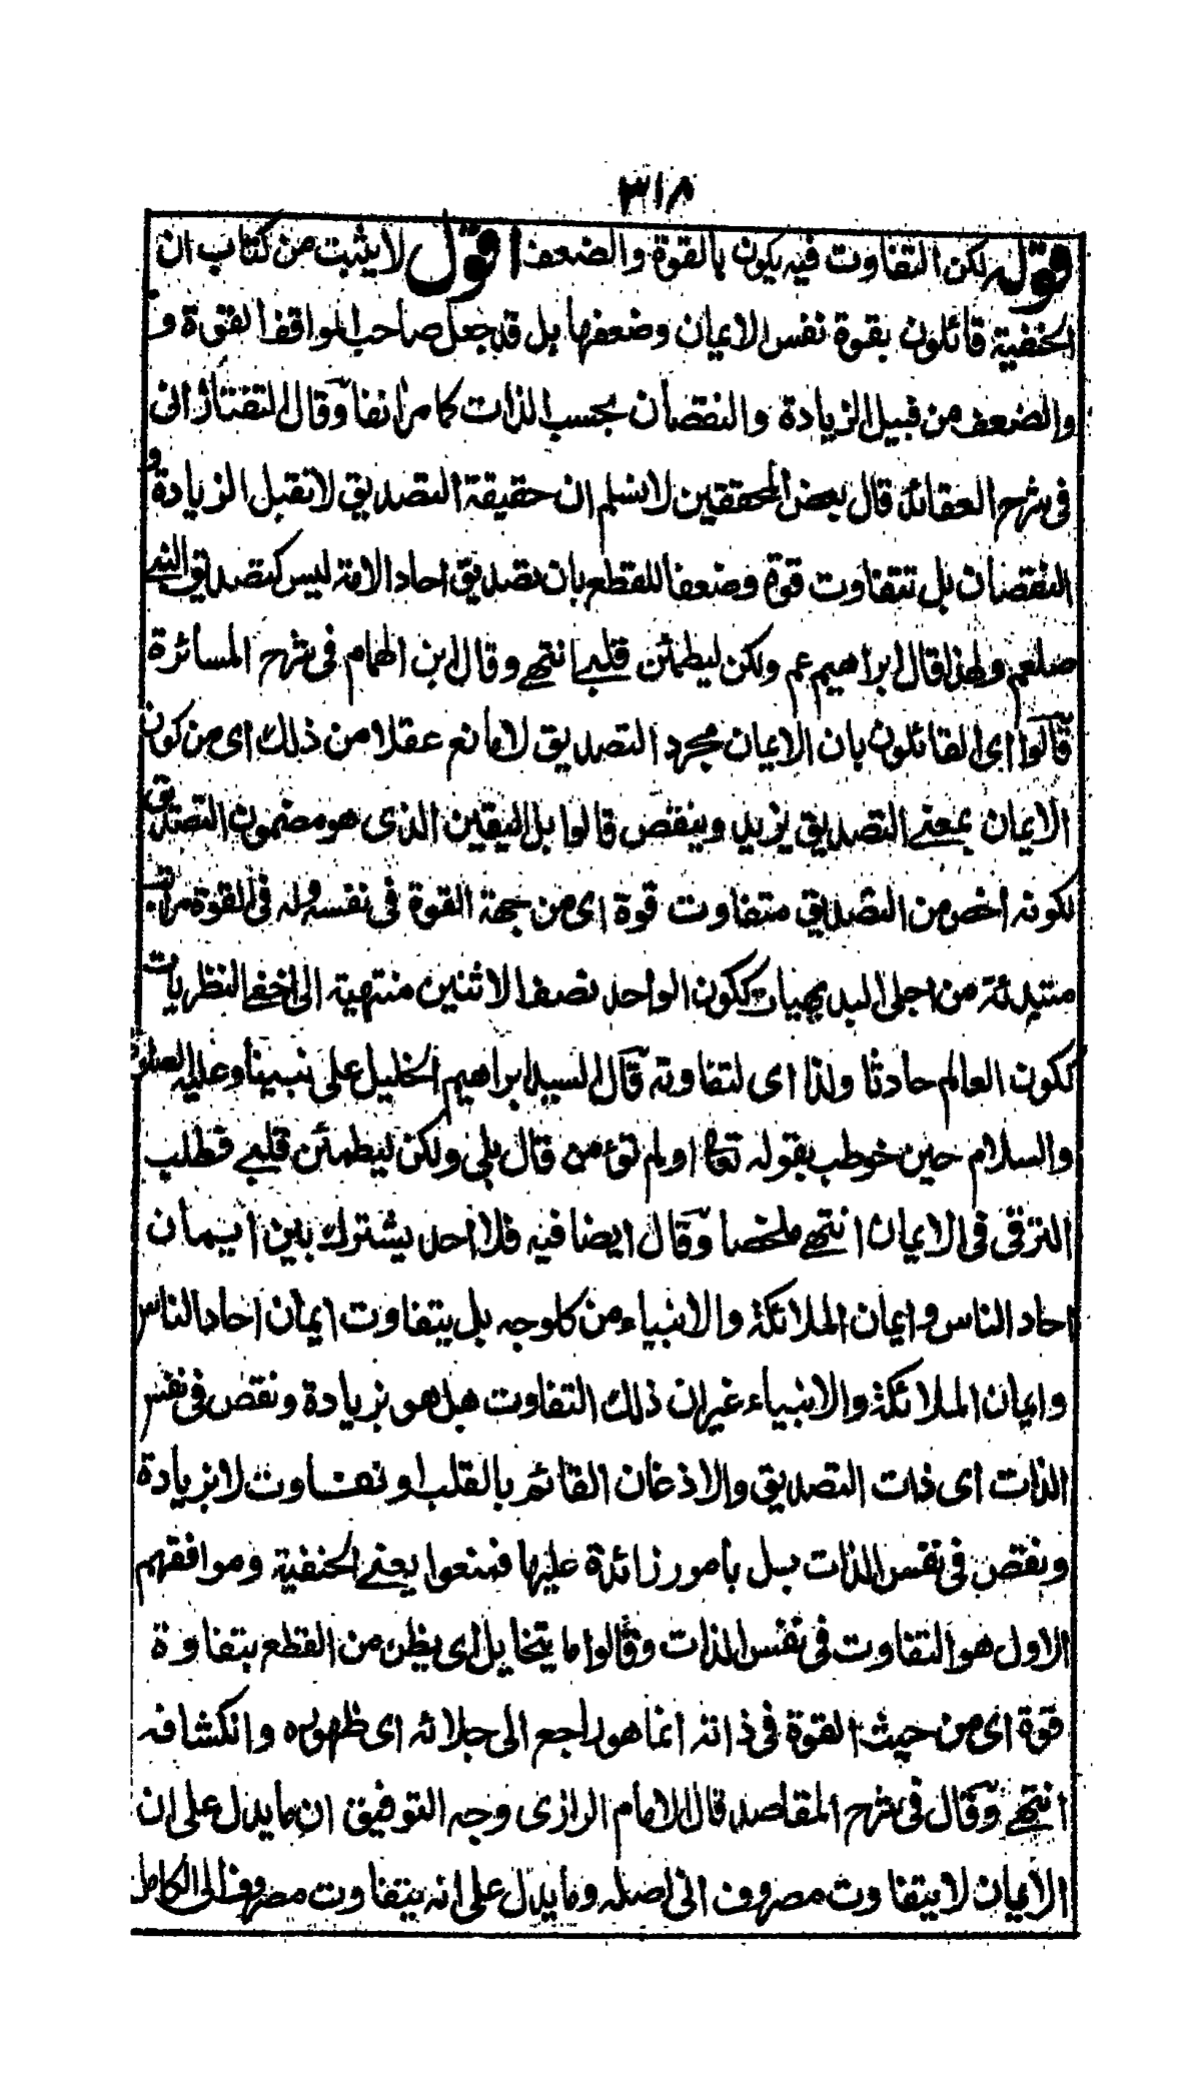 ٣١٨
قوله لكن التفاوت فيه يكون بالقوة والضعف اقول لا يثبت من كتاب ان
الحنفية قائلون بقوة نفس الايمان وضعفها بل قد جعل صاحب المواقف القوة و
والضعف من قبيل الزيادة والنقصان بحسب الذات كما مر انفا وقال التفتازانى
فى شرح العقائد قال بعض المحققين لا نسلم ان حقيقة التصديق لا تقبل الزيادة و
النقصان بل تتفاوت قوة وضعفا للقطع بان تصديق احاد الامة ليس كتصديق النبى
صلعم ولهذا قال ابراهيم عم ولكن ليطمئن قلبى انتهى وقال ابن الهمام فى شرح المسائرة
قالوا اى القائلون بان الايمان مجرد التصديق لا مانع عقلا من ذلك اى من كون
الايمان بمعنى التصديق يزيد وينقص قالوا بل اليقين الذى هو مضمون التصديق
لكونه اخص من التصديق متفاوت قوة اى من جهة القوة فى نفسه وله فى القوة مراتب
مبتدئة من اجلى البديهيات ككون الواحد نصف الاثنين منتهية الى اخفى النظريات
ككون العالم حادثا ولذا اى لتفاوته قال السيد ابراهيم الخليل على نبينا وعليه الصلوة
والسلام حين خوطب بقوله تعالى اولم تؤمن قال بلى ولكن ليطمئن قلبى فطلب
الترقى فى الايمان انتهى ملخصا وقال ايضا فيه فلا احد يشترك بين ايمان
احاد الناس و ايمان الملائكة والانبياء من كل وجه بل يتفاوت ايمان احاد الناس
وايمان الملائكة والانبياء غير ان ذلك التفاوت هل هو بزيادة ونقص فى نفس
الذات اى ذات التصديق والاذعان القائم بالقلب او تفاوت لا بزيادة
ونقص فى نفس الذات بل بامور زائدة عليها فمنعوا يعنى الحنفية وموافقهم
الاول هو التفاوت فى نفس الذات وقالوا ما يتخايل اى يظن من القطع بتفاوة
قوة اى من حيث القوة فى ذاته انما هو راجع الى جلائه اى ظهوره وانكشافه
انتهى وقال فى شرح المقاصد قال الامام الرازى وجه التوفيق ان ما يدل على ان
الايمان لا يتفاوت مصروف الى اصله وما يدل على انه يتفاوت مصروف الى الكامل